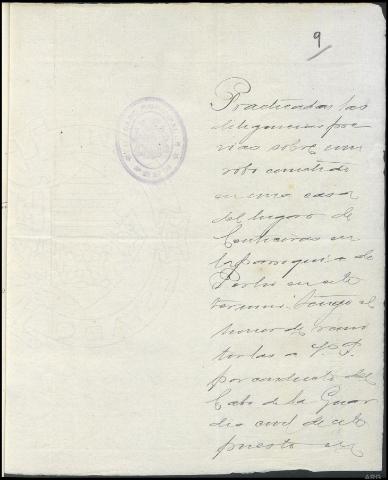 9
Practicadas las
diligencias pre
vias sobre un
robo cometido
en una casa
del lugar de
en
la parroquia de
en este
termino tengo el
honor de remi
tirlas a V. S.
por conducto del
Cabo de la Guar
dia civil de este
puesto en
ARG